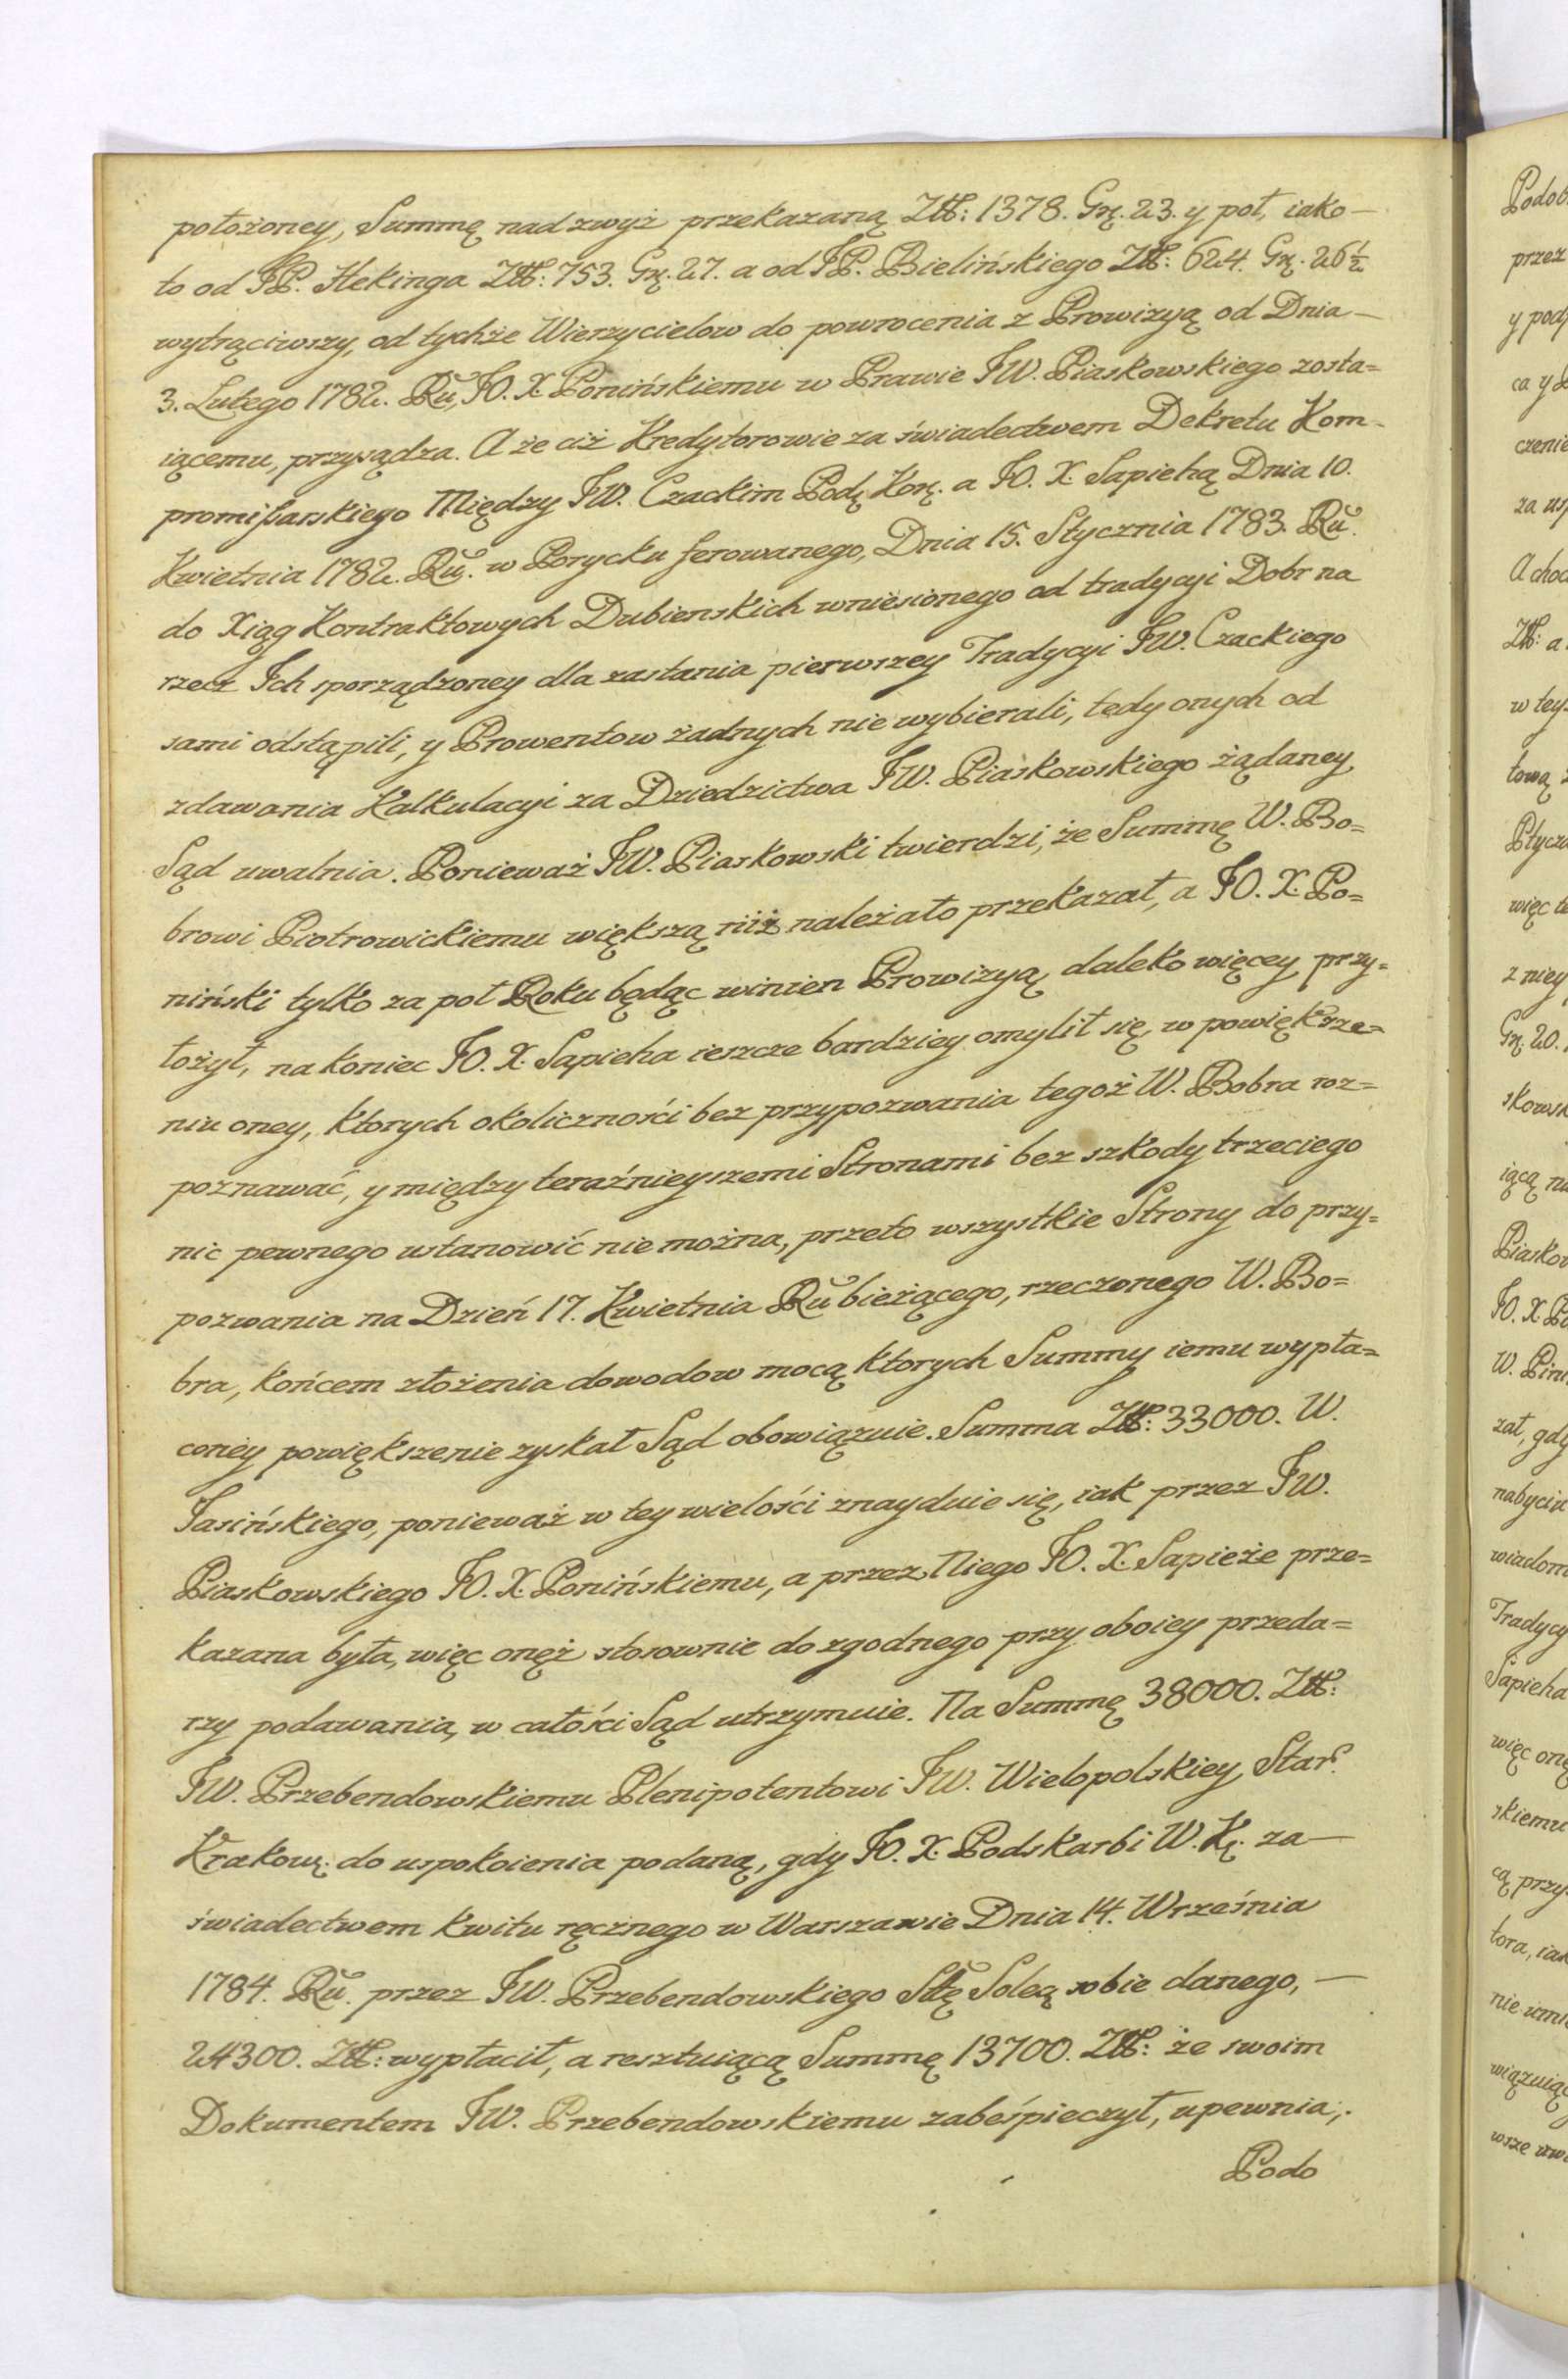 położoney, Summę nadzwyż przekazaną Złł: 1378. Gr. 23. y poł, iako—
to od JP. Hekinga Złł: 753. Gr. 27. a od JP. Bielińskiego Złł: 624. Gr. 26½
wytrąciwszy, od tychże Wierzycielow do powrocenia z Prowizyą od Dnia—
3. Lutego 1782. Ru, JO. X. Ponińskiemu w Prawie JW. Piaskowskiego zosta=
iącemu, przysądza. A że ciż Kredytorowie za świadectwem Dekretu Kom-
promissarskiego Między JW. Czackim Podę Korę. a JO. X. Sapiehą Dnia 10.
Kwietnia 1782. Ru. w Porycku ferowanego, Dnia 15. Stycznia 1783. Ru.
do Xiąg Kontraktowych Dubienskich wniesionego od tradycyi Dobr na
rzecz Ich sporządzoney dla zastania pierwszey Tradycyi JW. Czackiego
sami odstąpili, y Prowentow żadnych nie wybierali, tedy onych od
zdawania Kalkulacyi za Dziedzictwa JW. Piaskowskiego żądaney,
Sąd uwalnia. Ponieważ JW. Piaskowski twierdzi, że Summę W. Bo=
browi Piotrowickiemu większą niż należało przekazał, a JO. X. Po=
niński tylko za poł Roku będąc winien Prowizyą daleko więcey przy=
łożył, na koniec JO. X. Sapieha ieszcze bardziey omylił się, w powiększe=
niu oney, ktorych okoliczności bez przypozwania tegoż W. Bobra roz=
poznawać, y między teraźnieyszemi Stronami bez szkody trzeciego
nic pewnego ustanowić nie można, przeto wszystkie Strony do przy=
pozwania na Dzień 17. Kwietnia Ru bieżącego, rzeczonego W. Bo=
bra, końcem złożenia dowodow mocą ktorych Summy iemu wypła=
coney powiększenie zyskał Sąd obowiązuie. Summa Złł: 33000. W.
Jasińskiego, ponieważ w tey wielości znayduie się, iak przez JW.
Piaskowskiego JO. X. Ponińskiemu, a przez Niego JO. X. Sapieże prze=
kazana była, więc onęż stosownie do zgodnego przy oboiey przeda=
rzy podawania, w całości Sąd utrzymuie. Na Summę 38000. Złł:
JW. Przebendowskiemu Plenipotentowi JW. Wielopolskiey, Star.
Krakow. do uspokoienia podaną, gdy JO. X. Podskarbi W. K. za—
świadectwem kwitu ręcznego w Warszawie Dnia 14. Września
1784. Ru. przez JW. Przebendowskiego Stę Solec sobie danego,—
24300. Złł: wypłacił, a resztuiącą Summę 13700. Złł: że swoim
Dokumentem JW. Przebendowskiemu zabeśpieczył, upewnia,.
Podo